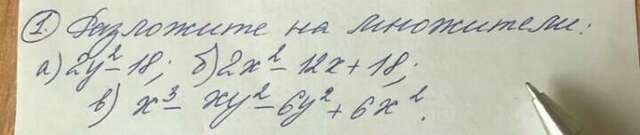 1. Разложите на множители:
а) 2y² - 18; б) 2x² - 12x + 18;
в) x³ - xy² - 6y² + 6x².